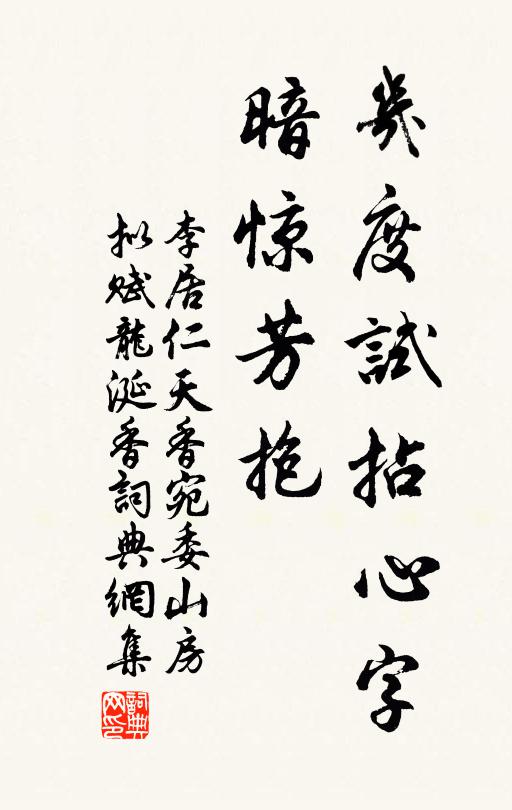 幾度試拈心字
暗惊芳抱
李居仁天香宛委山房
拟赋龍涎香詞典網集
詞典網印